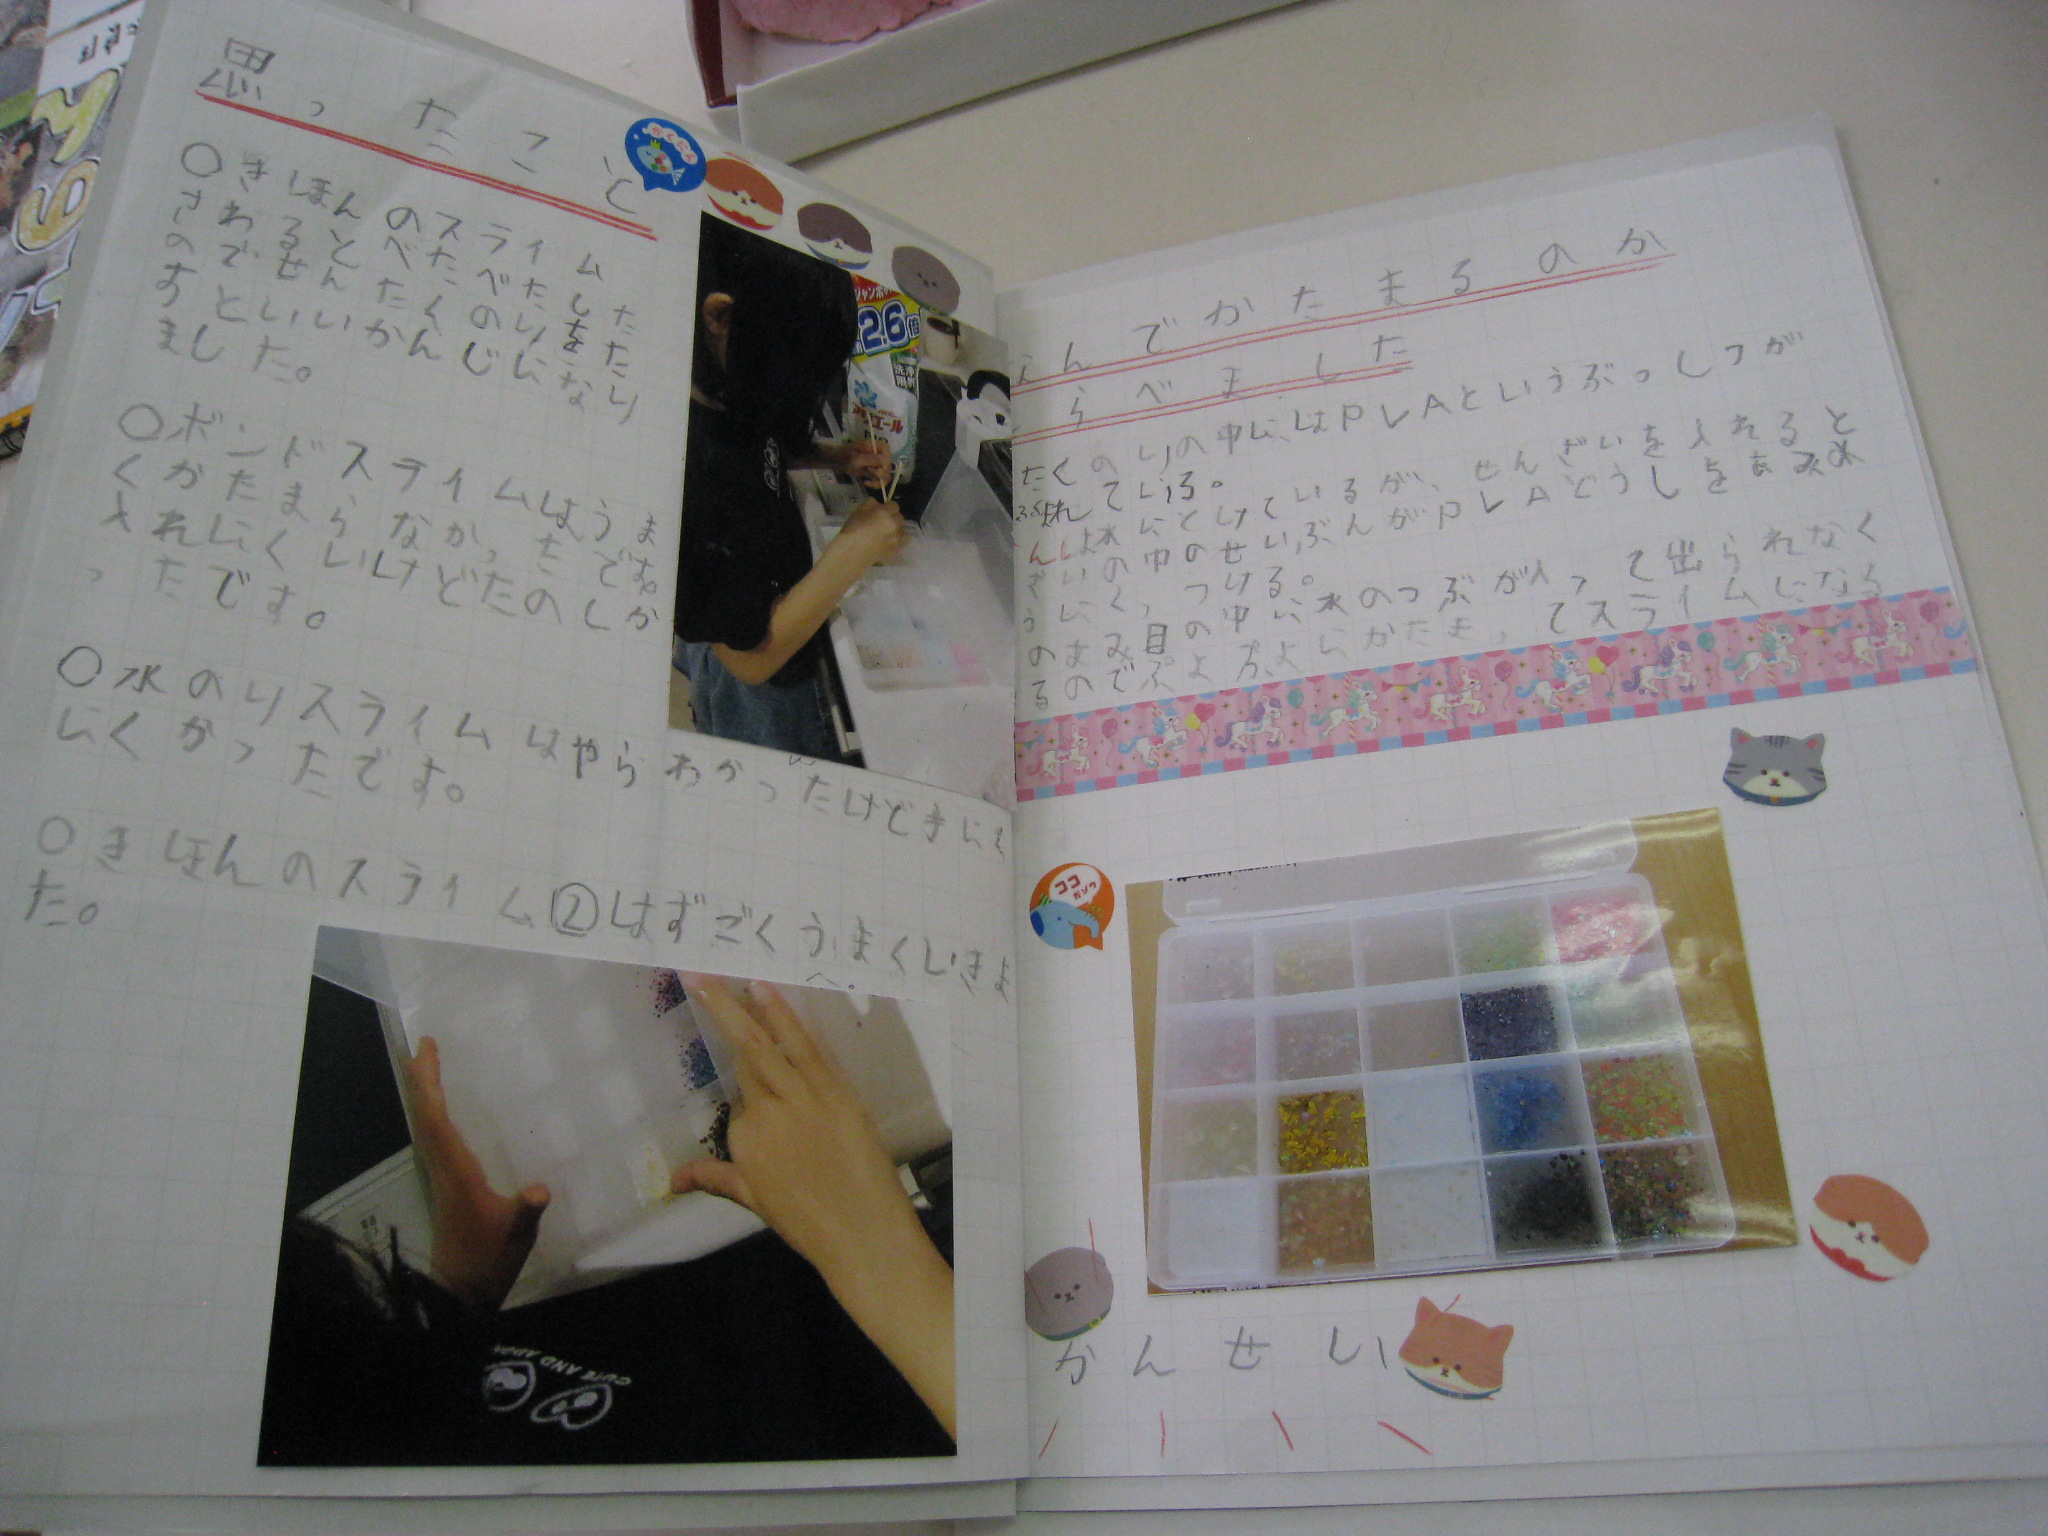 思ったこと
かくにん
○きほんのスライム
さわるとべたべたした
のでせんたくのりをたたり
すといいかんじにな
ました。
○ボンドスライムはうま
くかたまらなかったです。
入れにくいけどたのしか
ったです。
○水のりスライムはやらわかったけどき
にくかったです。
○きほんのスライム②はずごくうまくいきま
た。
2.6倍
CUTE AND
んでかたまるのか
らべました
たくのりの中にはPVAというぶっしつが
れている。
水にとけているが、せんざいを入れると
ざいの中のせいぶんがPVAどうしをあみ
うにくっつける。
のあみ目の中に水のつぶが入って出られなく
るのでぷよぷよにかたまってスライムになる
ココ
かんせい